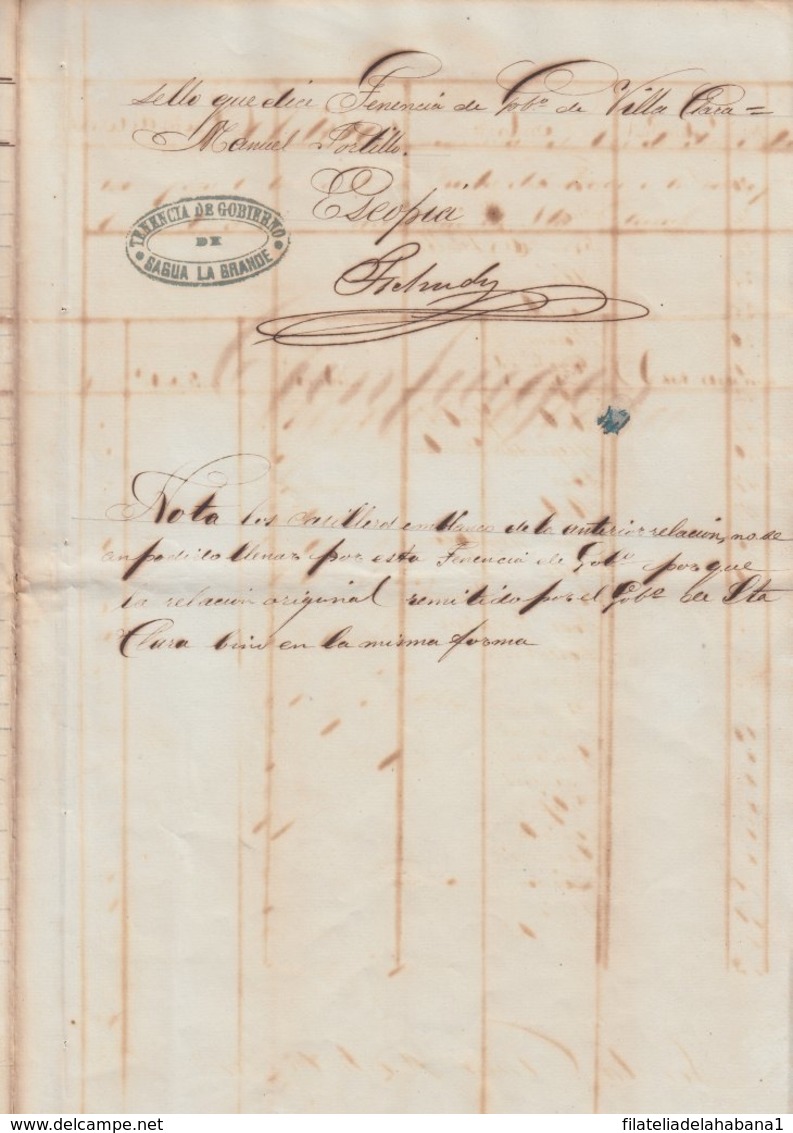 sello que dice Tenencia de Gobº de Villa Clara =
Manuel Portillo.
Es copia
TENENCIA DE GOBIERNO
DE
SAGUA LA GRANDE
Nota los casilleros en blanco de la anterior relacion, no se
an podido llenar por esta Tenencia de Gobº por que
la relacion original remitida por el Gobº de Sta
Clara bino en la misma forma
delcampe.net
filateliadelahabana1